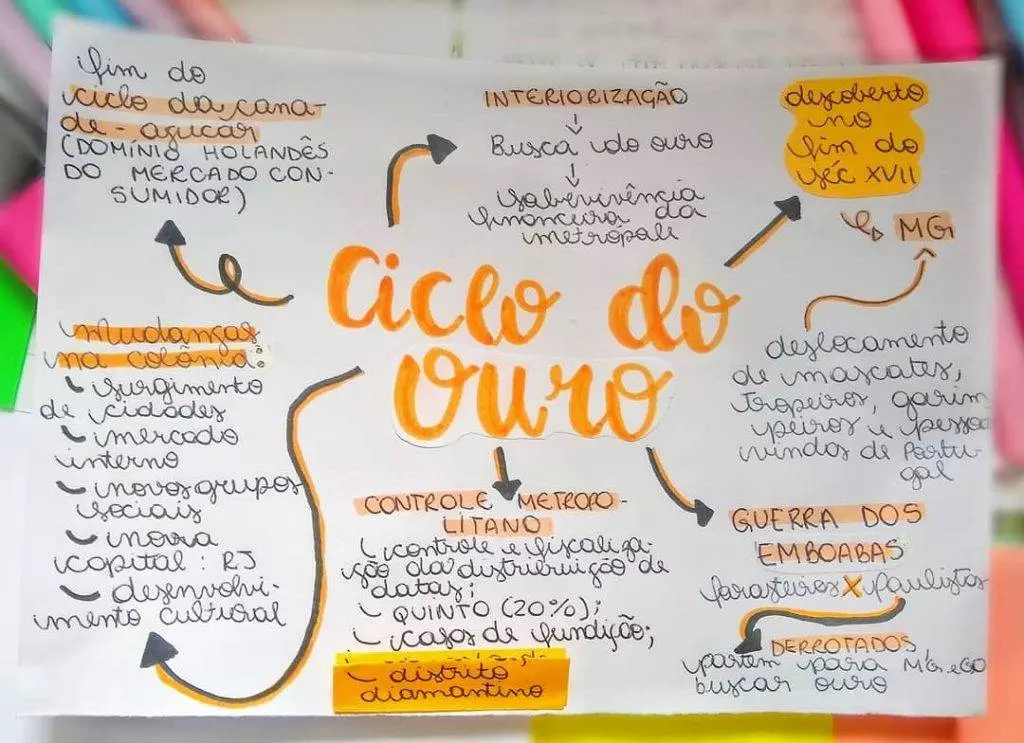 fim do
ciclo da cana-
de-açucar
(DOMÍNIO HOLANDÊS
DO MERCADO CON-
SUMIDOR)
INTERIORIZAÇÃO
BUSCA do ouro
sobrevivência
financeira da
metrópole
descoberto
no
fim do
séc XVII
MG
ciclo do
ouro
deslocamento
de mascates,
tropeiros, garim
peiros e pessoa
vindas de Portu-
gal
mudanças
na colônia:
surgimento
de cidades
mercado
interno
novos grupos
sociais
nova
capital: RJ
desenvolvi-
mento cultural
CONTROLE METROPO-
LITANO
controle e fiscaliza-
ção da distribuição de
datas;
QUINTO (20%);
casas de fundição;
distrito
diamantino
GUERRA DOS
EMBOABAS
forasteiros X paulistas
DERROTADOS
partem para MG e GO
buscar ouro